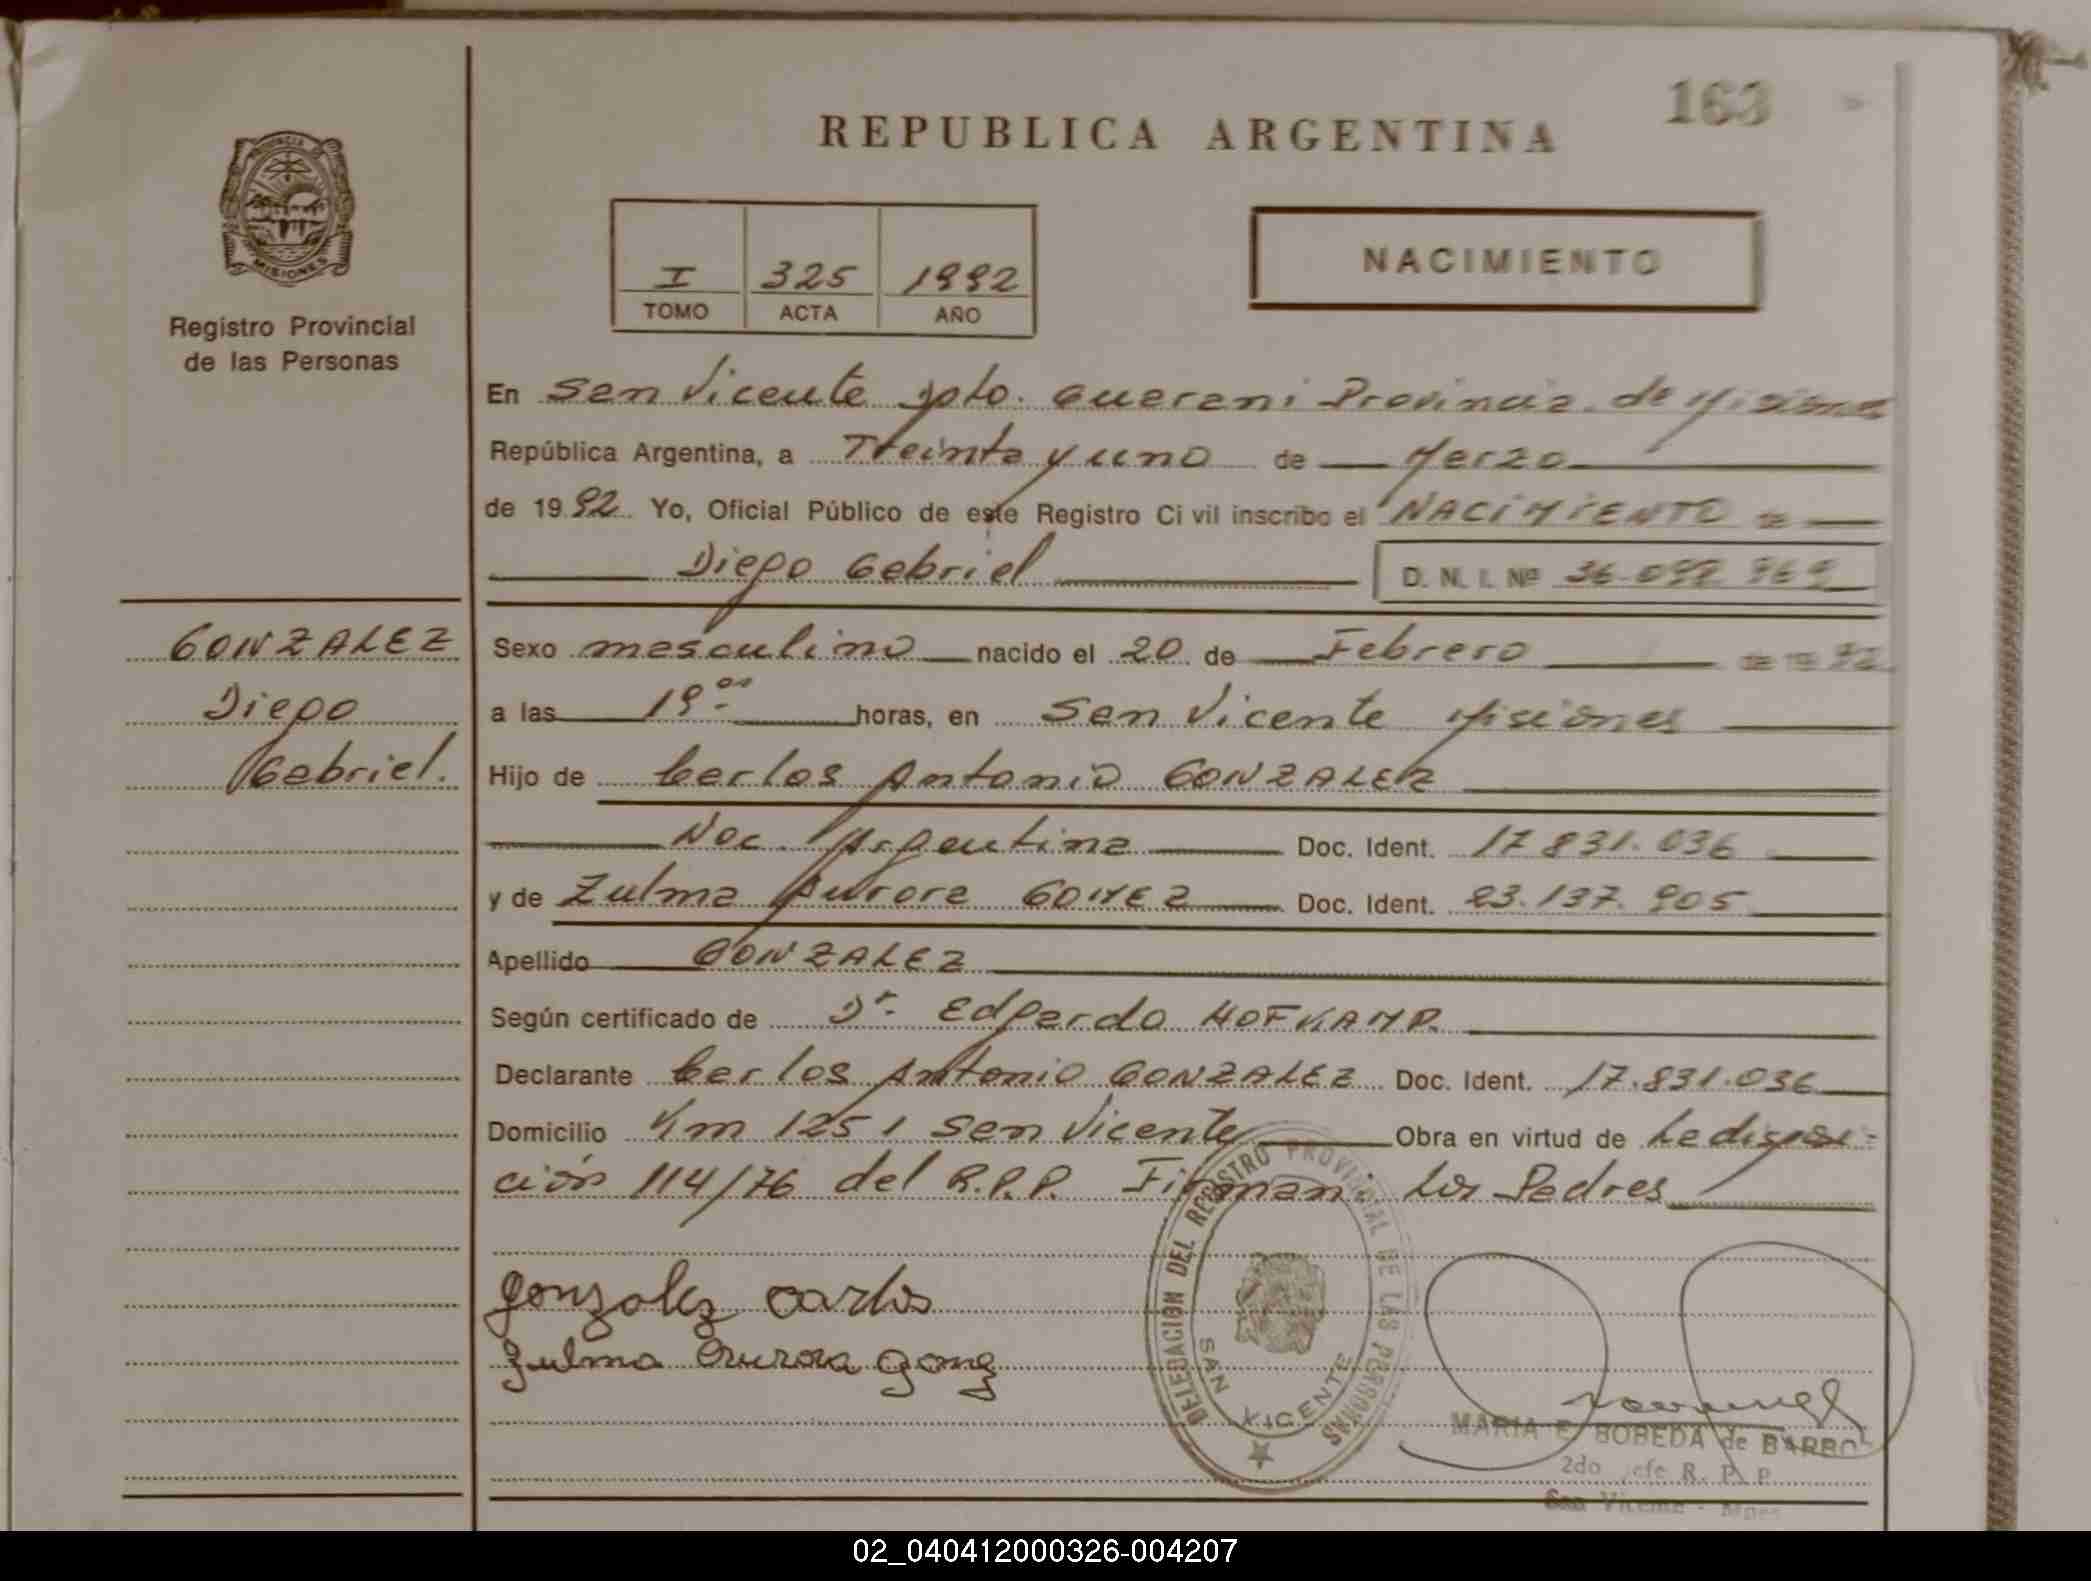 163
REPUBLICA ARGENTINA
PROVINCIA DE
MISIONES
Registro Provincial
de las Personas
I 325 1992
TOMO ACTA AÑO
NACIMIENTO
En San Vicente Dpto. Guarani Provincia de Misiones
República Argentina, a Treinta y uno de Marzo
de 1992 Yo, Oficial Público de este Registro Civil inscribo el NACIMIENTO de
Diego Gabriel D. N. I. Nº 36.097.969
GONZALEZ
Diego
Gabriel.
Sexo masculino nacido el 20 de Febrero de 1992
a las 19.00 horas, en San Vicente Misiones
Hijo de Carlos Antonio GONZALEZ
Nac. Argentina Doc. Ident. 17.831.036
y de Zulma Aurora GOMEZ Doc. Ident. 23.137.905
Apellido GONZALEZ
Según certificado de Dr. Edgardo HOFKAMP.
Declarante Carlos Antonio GONZALEZ Doc. Ident. 17.831.036
Domicilio Km 1251 San Vicente Obra en virtud de La disposi-
ción 114/76 del R.P.P. Firman: los Padres
Gonzalez Carlos
Zulma Aurora Gomez
DELEGACION DEL REGISTRO PROVINCIAL DE LAS PERSONAS
SAN VICENTE
MARIA E. BOBEDA de BARBO
2do Jefe R. P. P.
San Vicente - Mnes
02_040412000326-004207